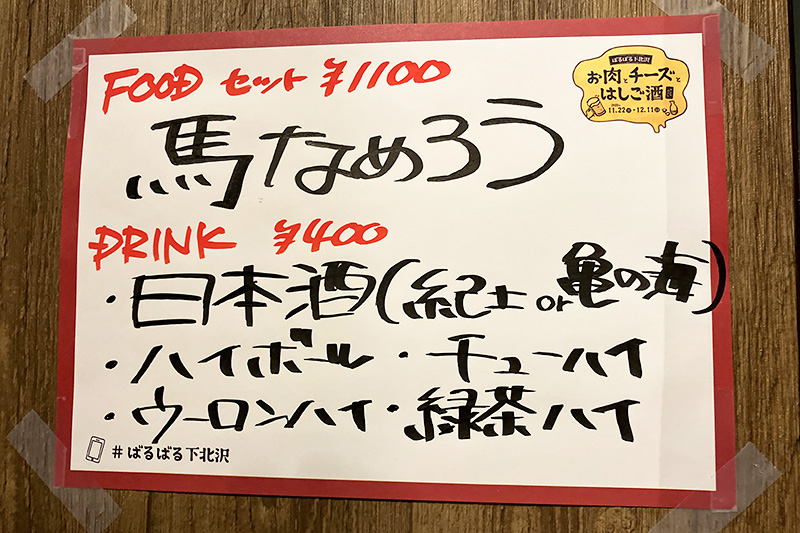 FOOD セット ¥1100
ばるばる下北沢
お肉とチーズと
はしご酒
11.22 - 12.11
馬なめろう
DRINK ¥400
・日本酒(紀土 or 亀の海)
・ハイボール ・チューハイ
・ウーロンハイ・緑茶ハイ
#ばるばる下北沢